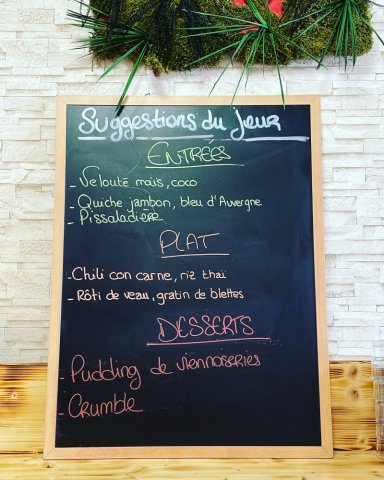 Suggestions du Jour
ENTRÉES
- Velouté maïs, coco
- Quiche jambon, bleu d'Auvergne
- Pissaladière
PLAT
- Chili con carne, riz thaï
- Rôti de veau, gratin de blettes
DESSERTS
- Pudding de viennoiseries
- Crumble